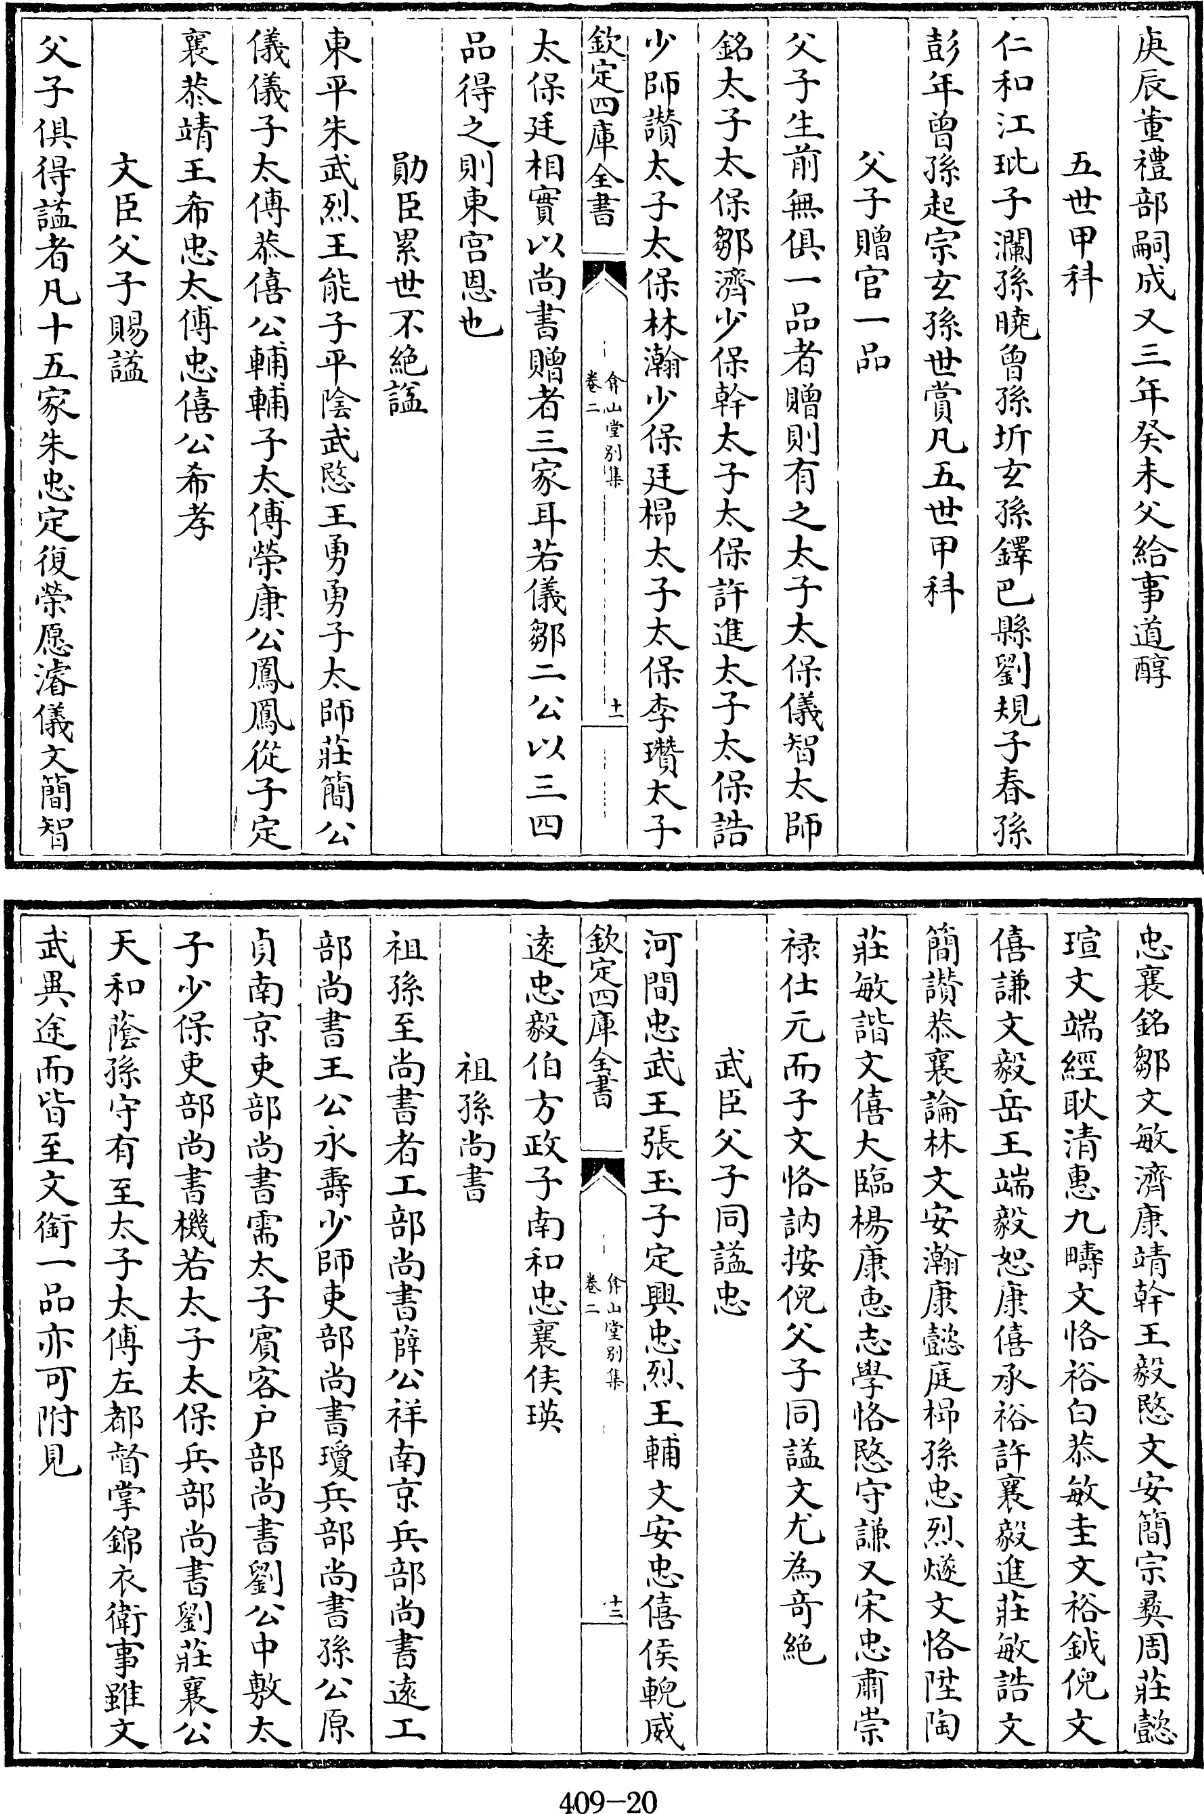 庚辰董禮部嗣成又三年癸未父給事道醇
五世甲科
仁和江玭子瀾孫曉曾孫圻玄孫鐸巴縣劉規子春孫
彭年曾孫起宗玄孫世賞凡五世甲科
父子贈官一品
父子生前無俱一品者贈則有之太子太保儀智太師
銘太子太保鄒濟少保幹太子太保許進太子太保誥
少師讚太子太保林瀚少保廷㭿太子太保李瓚太子
欽定四庫全書
弇山堂別集
卷二
十一
太保廷相實以尚書贈者三家耳若儀鄒二公以三四
品得之則東宫恩也
勛臣累世不絶諡
東平朱武烈王能子平陰武愍王勇勇子太師莊簡公
儀儀子太傅恭僖公輔輔子太傅榮康公鳳鳳從子定
襄恭靖王希忠太傅忠僖公希孝
文臣父子賜諡
父子俱得諡者凡十五家朱忠定復榮愿濬儀文簡智
忠襄銘鄒文敏濟康靖幹王毅愍文安簡宗彛周莊懿
瑄文端經耿清惠九疇文恪裕白恭敏圭文裕鉞倪文
僖謙文毅岳王端毅恕康僖承裕許襄毅進莊敏誥文
簡讚恭襄論林文安瀚康懿庭㭿孫忠烈燧文恪陞陶
莊敏諧文僖大臨楊康惠志學恪愍守謙又宋忠肅崇
禄仕元而子文恪訥按倪父子同諡文尤為奇絶
武臣父子同諡忠
河間忠武王張玉子定興忠烈王輔文安忠僖侯輗威
欽定四庫全書
弇山堂別集
卷二
十二
遠忠毅伯方政子南和忠襄侯瑛
祖孫尚書
祖孫至尚書者工部尚書薛公祥南京兵部尚書遠工
部尚書王公永壽少師吏部尚書瓊兵部尚書孫公原
貞南京吏部尚書需太子賓客户部尚書劉公中敷太
子少保吏部尚書機若太子太保兵部尚書劉莊襄公
天和蔭孫守有至太子太傅左都督掌錦衣衛事雖文
武異途而皆至文銜一品亦可附見
409-20